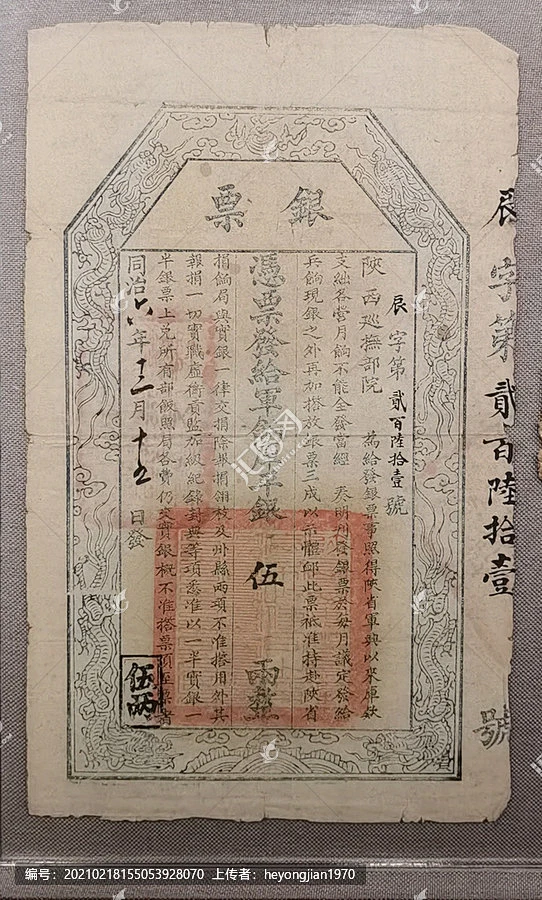 銀票
辰字第貳百陸拾壹號
陝西巡撫部院 為給發銀票事照得陝省軍興以來庫款
支絀各營月餉不能全發當經 奏明刊發銀票於每月議定發給
兵餉現銀之外再加搭放銀票三成以示體卹此票祗准持赴陝省
憑票發給軍餉平銀伍兩整
捐餉局與實銀一律交捐除舉捐翎枝及州縣兩項不准搭用外其
報捐一切實職虛銜貢監加級紀錄封典等項悉准以一半實銀一
半銀票上兌所有部飯照局各費仍交實銀概不准搭票須至票者
同治六年十二月十五日發
伍兩
辰字第貳百陸拾壹號
汇图网
编号：20210218155053928070 上传者：heyongjian1970